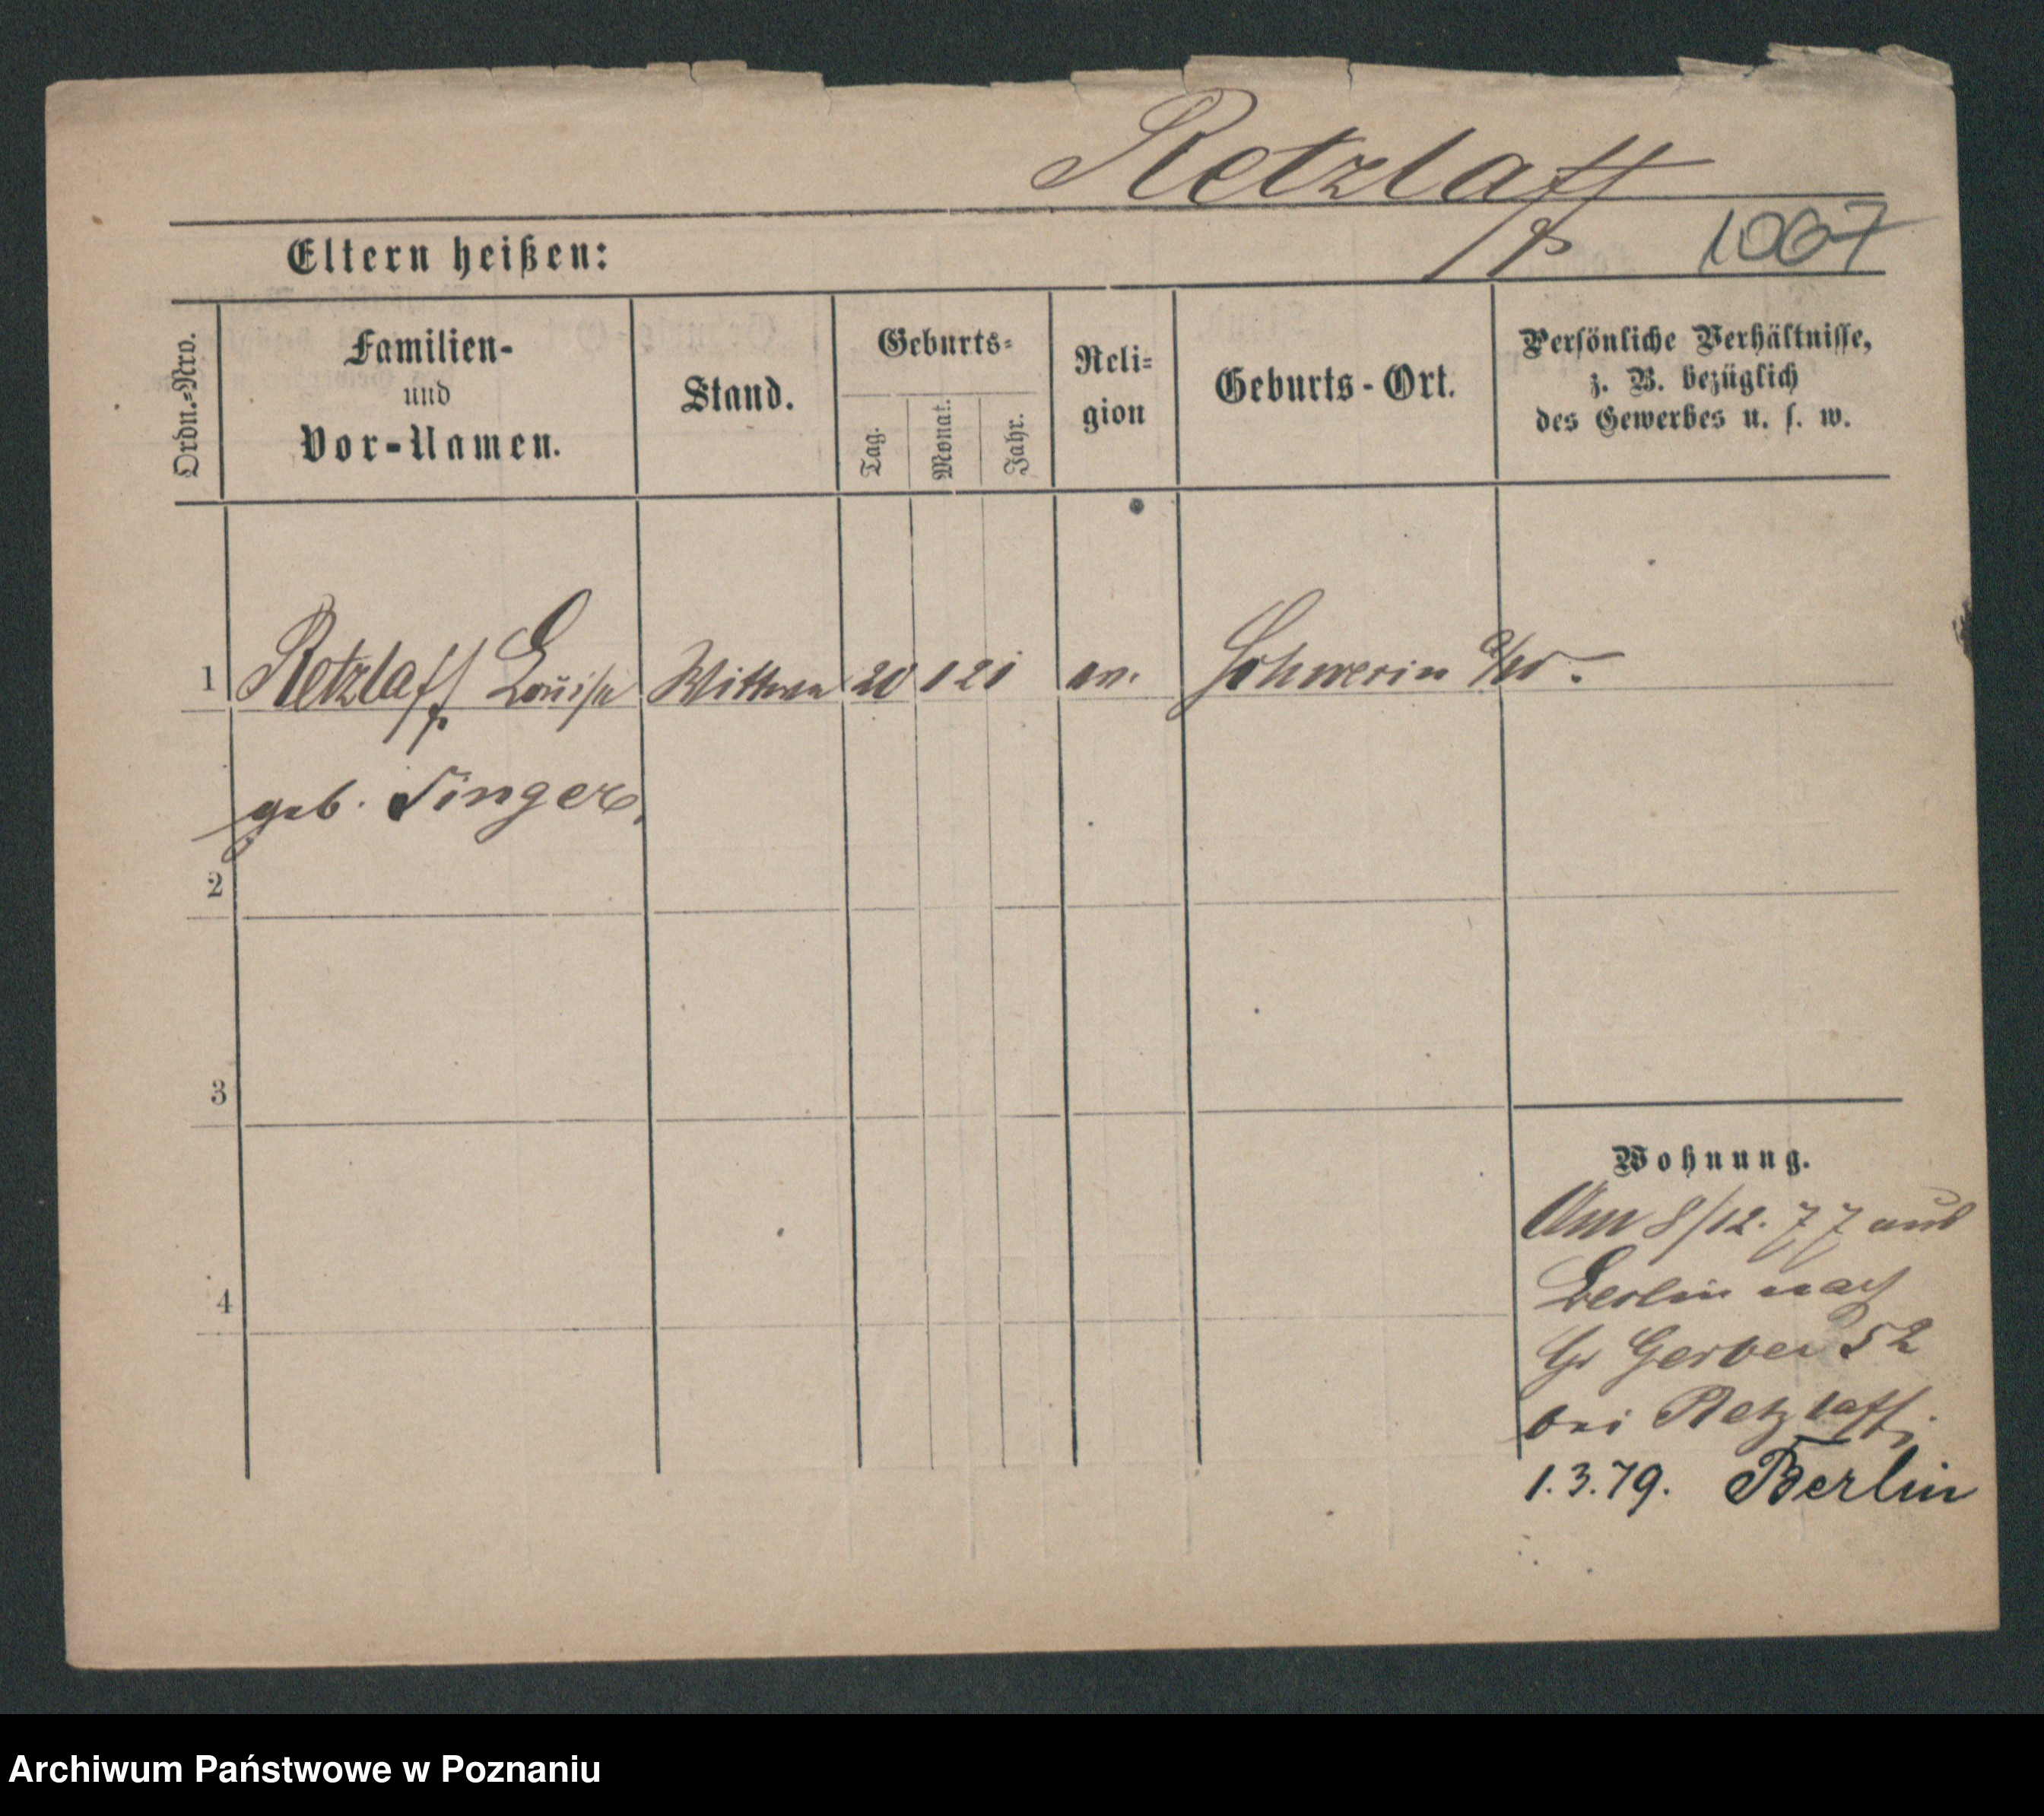 Retzlaff
1067
Eltern heißen:
Ordn.-Nro.
Familien-
und
Vor-Namen.
Stand.
Geburts-
Tag.
Monat.
Jahr.
Reli-
gion
Geburts-Ort.
Persönliche Verhältnisse,
z. B. bezüglich
des Gewerbes u. s. w.
1 Retzlaff Louise Wittwe 20 1 21 ev. Schwerin a/W.
geb. Singer.
2
3
4
Wohnung.
Am 8/12. 77 aus
Berlin nach
Gr Gerber 52
bei Retzlaff.
1.3.79. Berlin
Archiwum Państwowe w Poznaniu